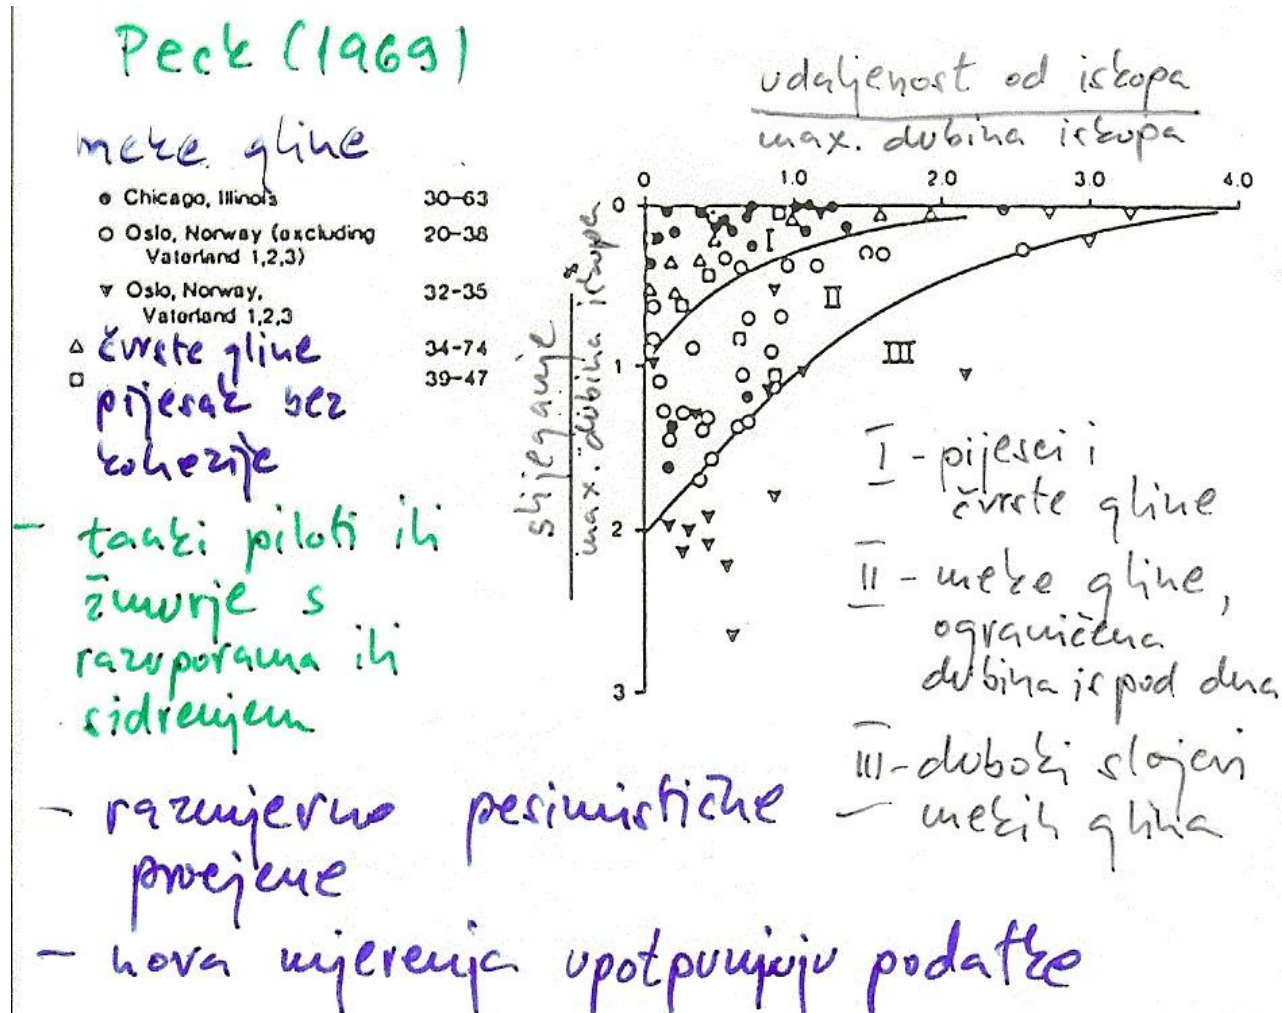 Peck (1969)
meke gline
Chicago, Illinois 30-63
Oslo, Norway (excluding 20-38
Vaterland 1,2,3)
Oslo, Norway, 32-35
Vaterland 1,2,3
čvrste gline 34-74
pijesak bez 39-47
kohezije
- tanki piloti ili
žmurje s
razuporama ili
sidrenjem
udaljenost od iskopa
max. dubina iskopa
0 1.0 2.0 3.0 4.0
0
1
2
3
slijeganje
max. dubina iskopa %
I
II
III
I - pijesci i
čvrste gline
II - meke gline,
ograničena
dubina ispod dna
III - duboki slojevi
mekih glina
- razmjerno pesimistične
procjene
- nova mjerenja upotpunjuju podatke